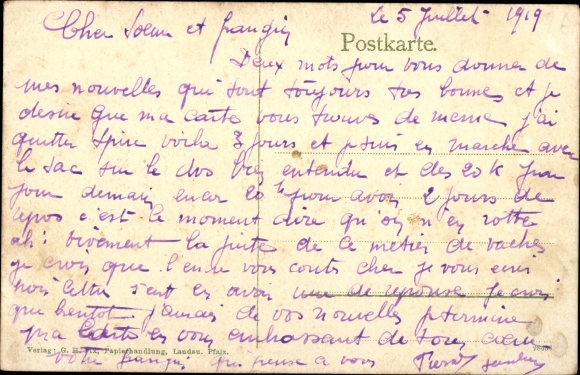 le 5 Juillet 1919
Cher Soeur et frangin
Postkarte.
Deux mots pour vous donner de
mes nouvelles qui sont toujours tres bonnes et je
desire que ma carte vous trouve de meme j'ai
quitter Spire voila 3 jours et p suis en marche avec
le sac sur le dos bien entendu et des 20 K par
jour demain encor 20 pour avoir 2 jours de
repos c'est le moment dire qu'on en rotte
ah: vivement la fuite de ce metier de vaches
je crois que l'envie vous coute cher je vous
une de reponse je crois
que bientot j'aurai de vos nouvelles p termine
ma carte en vous embrassant de tout coeur
Verlag: G. H. Fix, Papierhandlung, Landau, Pfalz.
votre frangin qui pense a vous